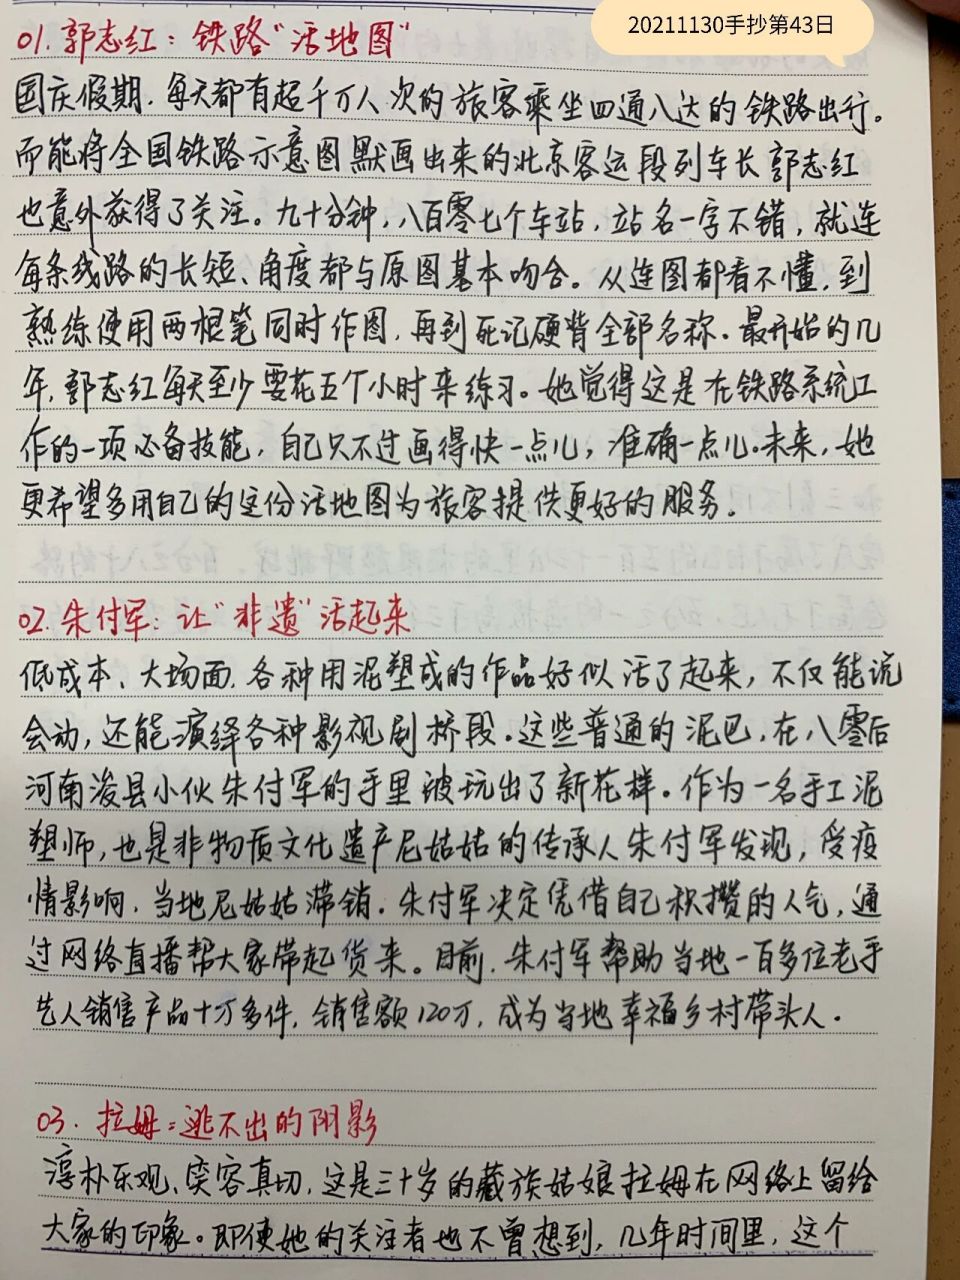 20211130手抄第43日
01.郭志红：铁路“活地图”
国庆假期，每天都有超千万人次的旅客乘坐四通八达的铁路出行。
而能将全国铁路示意图默画出来的北京客运段列车长郭志红
也意外获得了关注。九十分钟，八百零七个车站，站名一字不错，就连
每条线路的长短、角度都与原图基本吻合。从连图都看不懂，到
熟练使用两根笔同时作图，再到死记硬背全部名称。最开始的几
年，郭志红每天至少要花五个小时来练习。她觉得这是在铁路系统工
作的一项必备技能，自己只不过画得快一点儿，准确一点儿。未来，她
更希望多用自己的这份活地图为旅客提供更好的服务。
02.朱付军：让“非遗”活起来
低成本、大场面，各种用泥塑成的作品好似活了起来，不仅能说
会动，还能演绎各种影视剧桥段。这些普通的泥巴，在八零后
河南浚县小伙朱付军的手里被玩出了新花样。作为一名手工泥
塑师，也是非物质文化遗产尼姑姑的传承人朱付军发现，受疫
情影响，当地尼姑姑滞销。朱付军决定凭借自己积攒的人气，通
过网络直播帮大家带起货来。目前，朱付军帮助当地一百多位老手
艺人销售产品十万多件，销售额120万，成为当地幸福乡村带头人。
03.拉姆：逃不出的阴影
淳朴乐观、笑容真切，这是三十岁的藏族姑娘拉姆在网络上留给
大家的印象。即使她的关注者也不曾想到，几年时间里，这个